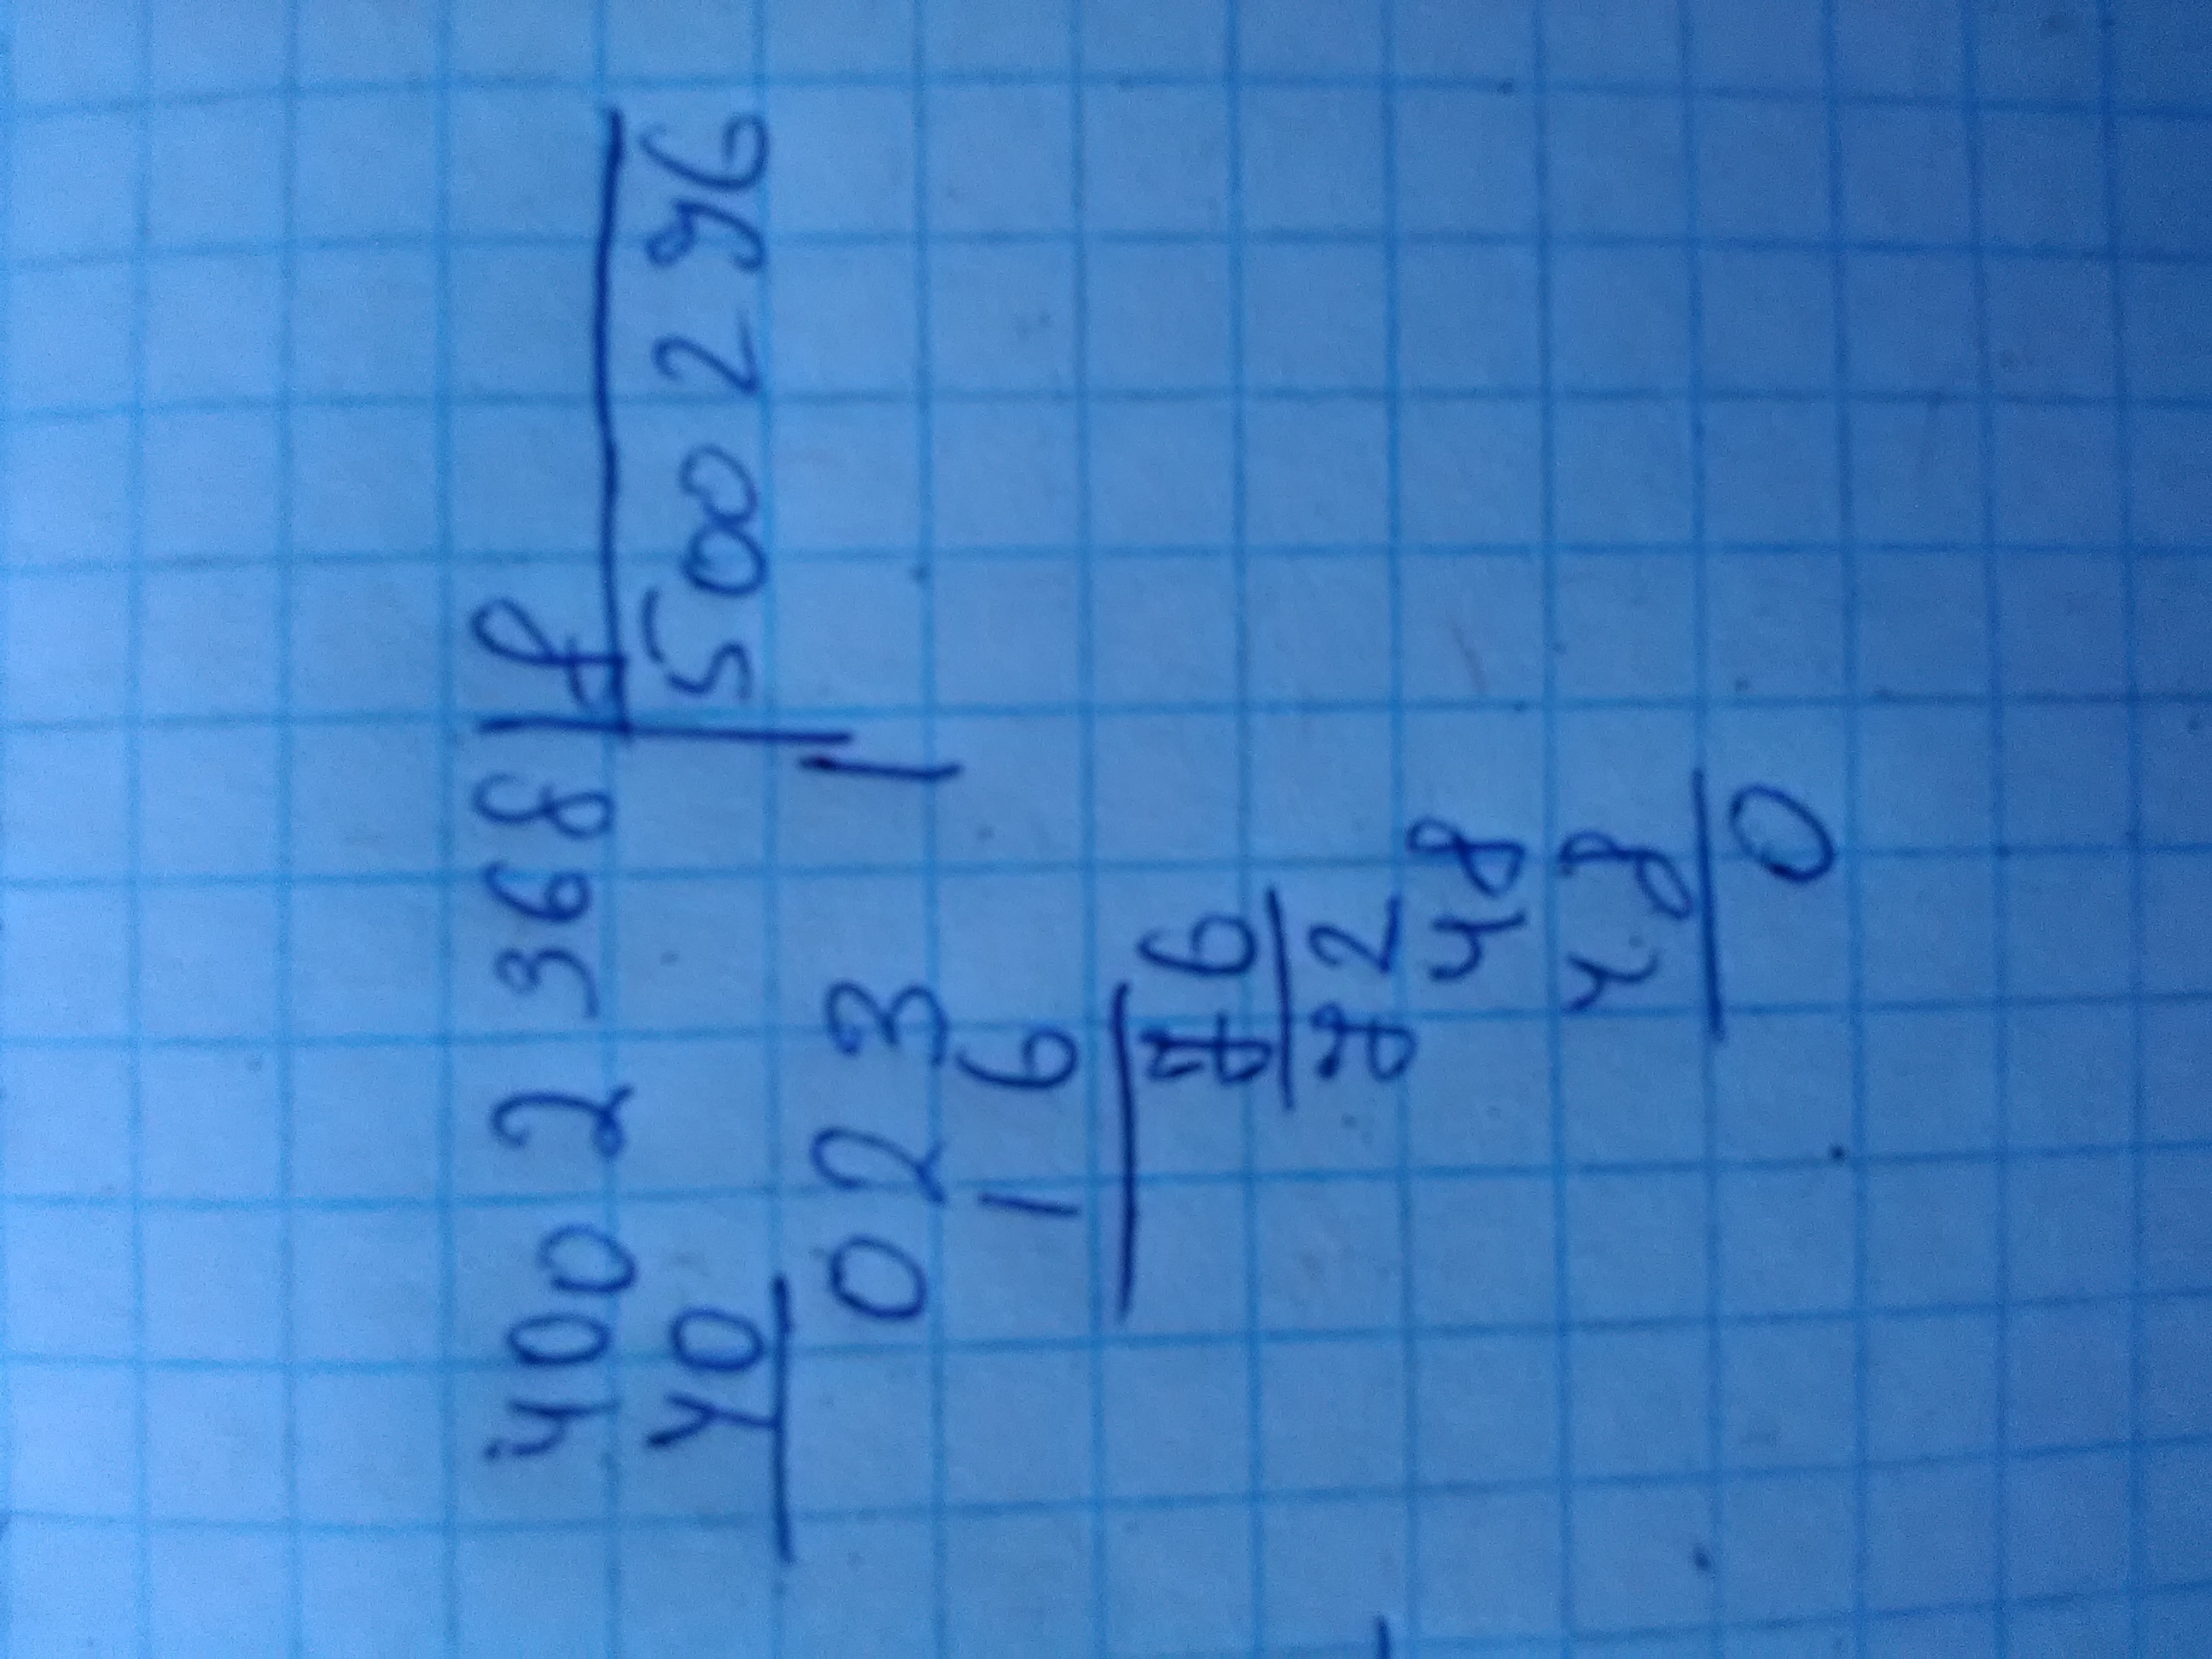 4002368 | 8
40 | 500296
023 1
16
76
72
48
48
0